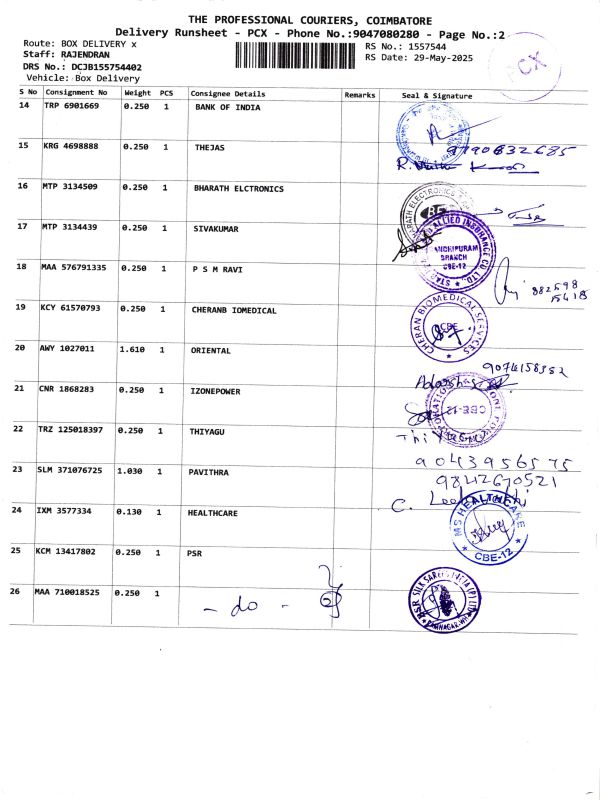 THE PROFESSIONAL COURIERS, COIMBATORE
Delivery Runsheet - PCX - Phone No.:9047080280 - Page No.:2
Route: BOX DELIVERY x
RS No.: 1557544
Staff: RAJENDRAN
RS Date: 29-May-2025
DRS No.: DCJB155754402
Vehicle: Box Delivery
PCX
S No Consignment No Weight PCS Consignee Details Remarks Seal & Signature
14 TRP 6901669 0.250 1 BANK OF INDIA
15 KRG 4698888 0.250 1 THEJAS
16 MTP 3134509 0.250 1 BHARATH ELCTRONICS
BHARATH ELECTRONICS
BE
17 MTP 3134439 0.250 1 SIVAKUMAR
ALLIED INSURANCE CO LTD
BRANCH
CBE-12
18 MAA 576791335 0.250 1 P S M RAVI
19 KCY 61570793 0.250 1 CHERANB IOMEDICAL
CHERAN BIOMEDICAL SERVICES
CBE
20 AWY 1027011 1.610 1 ORIENTAL
9074158352
Adarsh
21 CNR 1868283 0.250 1 IZONEPOWER
CBE-12
22 TRZ 125018397 0.250 1 THIYAGU
Thiyagu
9043956575
23 SLM 371076725 1.030 1 PAVITHRA
9842670521
C.
24 IXM 3577334 0.130 1 HEALTHCARE
MS HEALTHCARE
CBE-12
25 KCM 13417802 0.250 1 PSR
26 MAA 710018525 0.250 1
- do -
PSR SILK SAREES INDIA (P) LTD